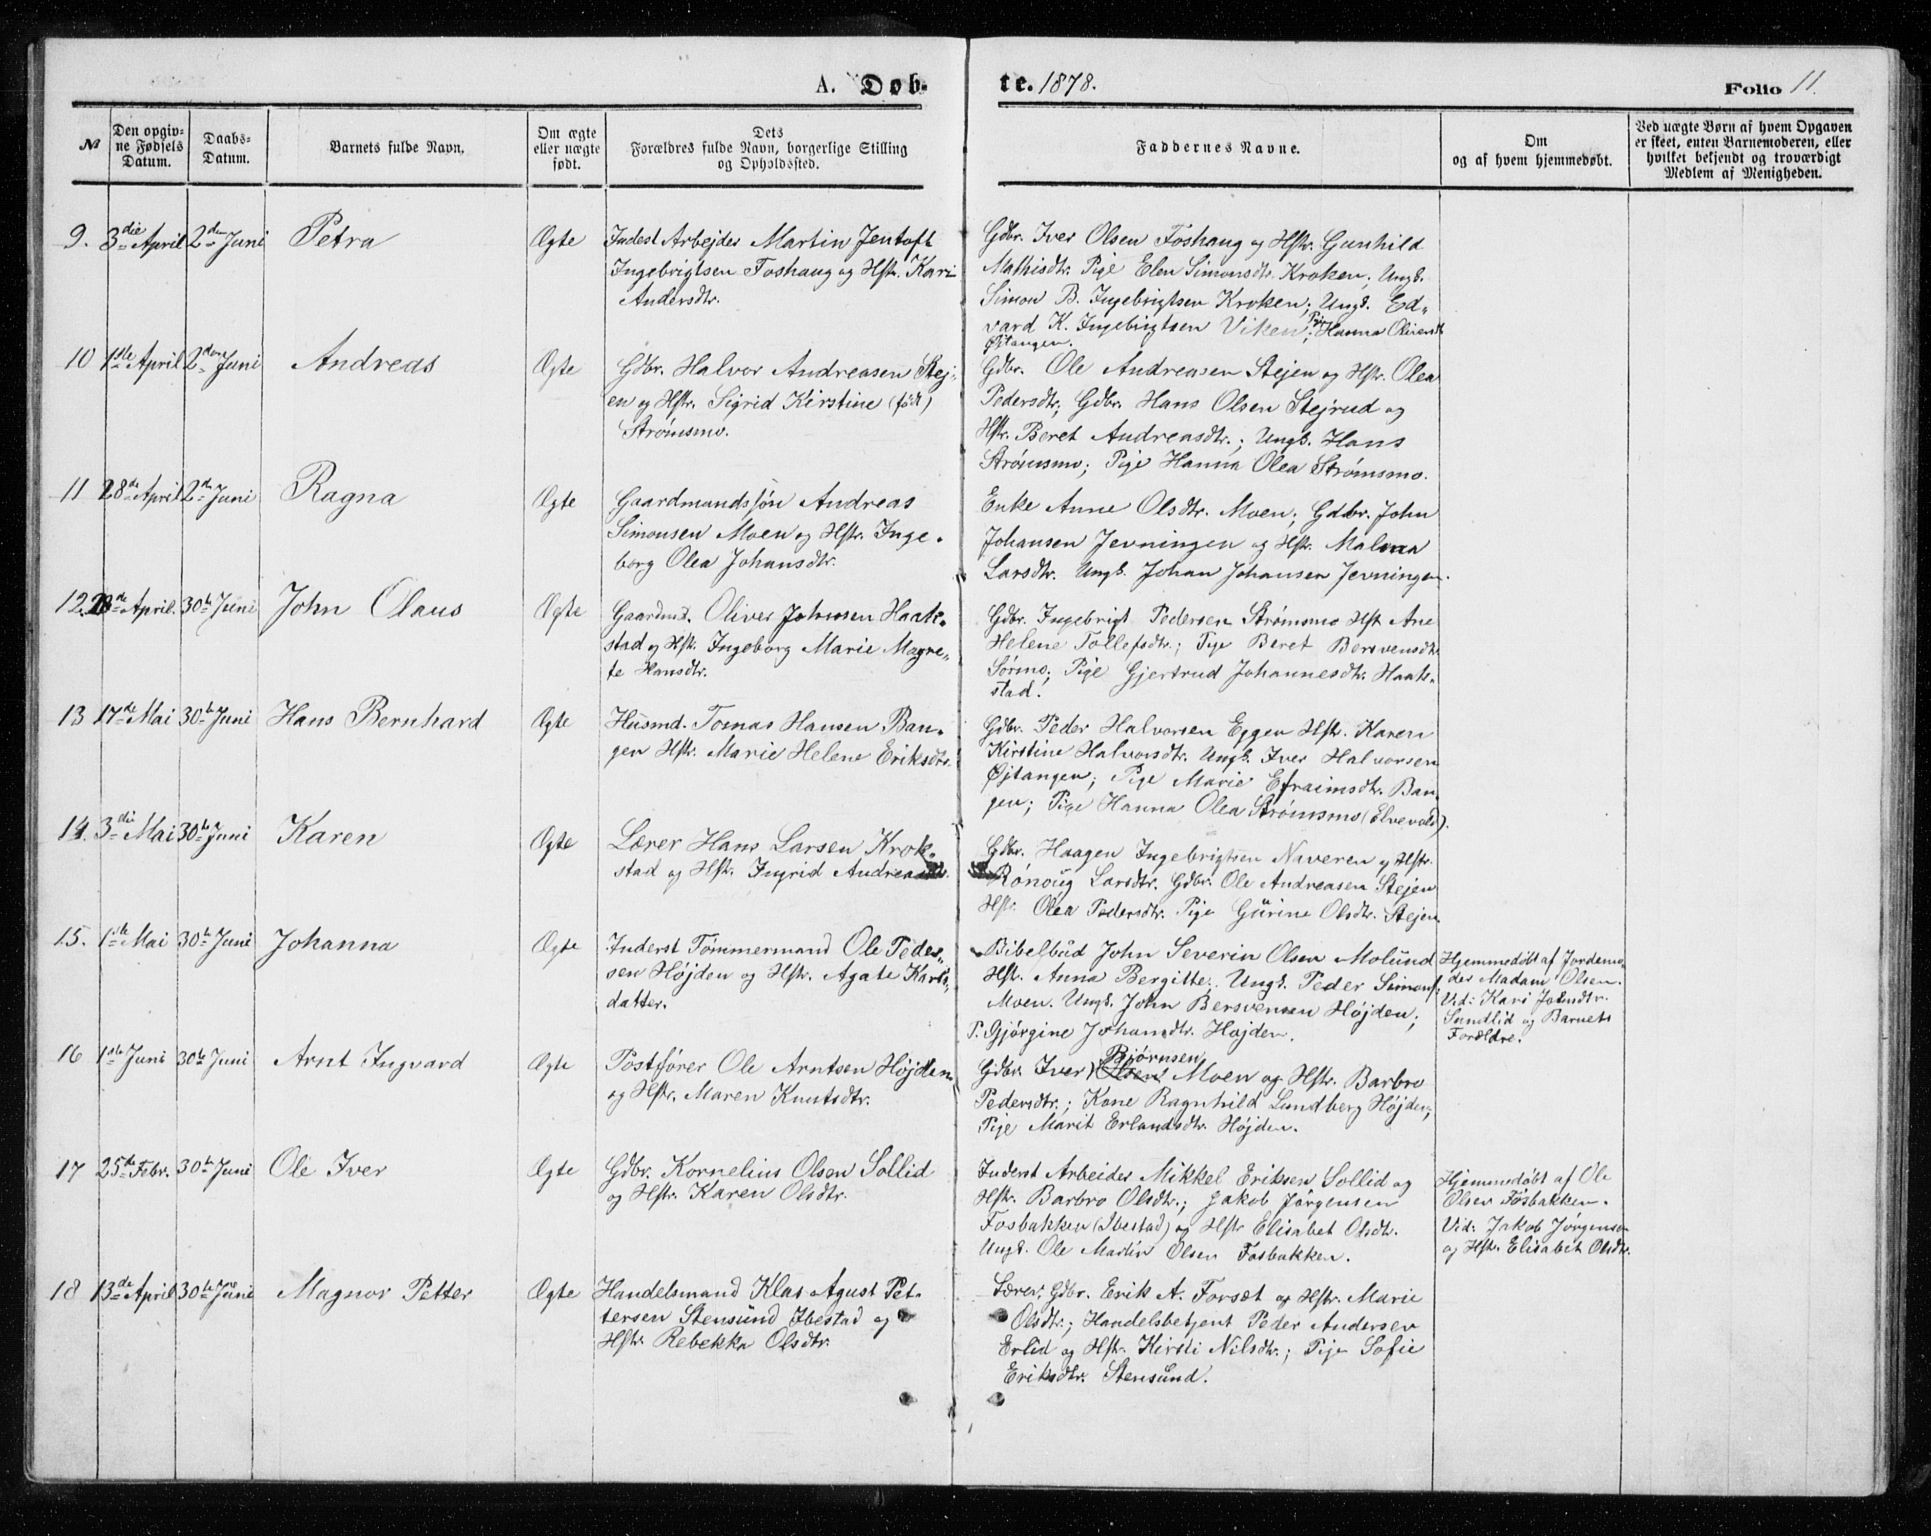 A. Døb-
te. 1878.
Folio 11.
№
Den opgiv-
ne Fødsels
Datum.
Daabs-
Datum.
Barnets fulde Navn.
Om ægte
eller uægte
født.
Dets
Forældres fulde Navn, borgerlige Stilling
og Opholdssted.
Faddernes Navne.
Om
og af hvem hjemmedøbt.
Ved uægte Børn af hvem Opgaven
er skeet, enten Barnemoderen, eller
hvilket bekjendt og troværdigt
Medlem af Menigheden.
9. 3die April 2den Juni Petra Ægte
Inderst Arbejder Martin Jentoft
Ingebrigtsen Foshaug og Hstr. Kari
Andersdtr.
Gdbr. Iver Olsen Foshaug og Hstr. Gunhild
Mathisdtr. Pige Elen Simonsdtr. Kroken; Ungk.
Simon B. Ingebrigtsen Kroken; Ungk. Ed-
vard K. Ingebrigtsen Viken; Pige Hanna Oliensdtr.
Øjtangen.
10 1ste April 2den Juni Andreas Ægte
Gdbr. Halvor Andreasen Stej-
en og Hstr. Sigrid Kirstine (født)
Strømsmo.
Gdbr. Ole Andreasen Stejen og Hstr. Olea
Pedersdtr; Gdbr. Hans Olsen Stejrud og
Hstr. Beret Andreasdtr.; Ungk. Hans
Strømsmo; Pige Hanna Olea Strømsmo.
11 28de April 2den Juni Ragna Ægte
Gaardmandssøn Andreas
Simonsen Moen og Hstr. Inge-
borg Olea Johansdtr.
Enke Anne Olsdtr. Moen; Gdbr. John
Johansen Jevningen og Hstr. Malena
Larsdtr. Ungk. Johan Johansen Jevningen.
12. 28de April. 30te Juni John Olaus Ægte
Gaardmd. Oliver Johnsen Haak-
stad og Hstr. Ingeborg Marie Magre-
te Hansdtr.
Gdbr. Ingebrigt Pedersen Strømsmo Hst Ane
Helene Tollefsdtr.; Pige Beret Bersvensdtr.
Sørmo; Pige Gjertrud Johannesdtr. Haak-
stad.
13 17de Mai 30te Juni Hans Bernhard Ægte
Husmd. Tomas Hansen Ban-
gen Hstr. Marie Helene Eriksdtr.
Gdbr. Peder Halvorsen Eggen Hstr. Karen
Kirstine Halvorsdtr. Ungk. Iver Halvorsen
Øjtangen; Pige Marie Efraimsdtr. Ban-
gen; Pige Hanna Olea Strømsmo (Elvevold).
14. 3die Mai 30te Juni Karen Ægte
Lærer Hans Larsen Krok-
stad og Hstr. Ingrid Andreasdtr.
Gdbr. Haagen Ingebrigtsen Naveren og Hstr.
Rønoug Larsdtr. Gdbr. Ole Andreasen Stejen
Hstr. Olea Pedersdtr. Pige Gurine Olsdtr. Stejen
15. 1ste Mai 30te Juni Johanna Ægte
Inderst Tømmermand Ole Peder-
sen Højden og Hstr. Agate Karls-
datter.
Bibelbud John Severin Olsen Molund
Hst. Anna Bergitte; Ungk. Peder Simons.
Moen. Ungk. John Bersvensen Højden;
P. Gjørgine Johansdtr. Højden.
Hjemmedøbt af Jordemo-
der Madam Olsen.
Vid: Kari Johnsdtr.
Sundlid og Barnets
Forældre.
16 1ste Juni 30te Juni Arnt Ingvard Ægte
Postfører Ole Arntsen Højden
og Hstr. Maren Knutsdtr.
Gdbr. Iver Bjørnsen Moen og Hstr. Barbro
Pedersdtr.; Kone Ragnhild Lundberg Højden;
Pige Marit Erlandsdtr. Højden.
17 25de Febr. 30te Juni Ole Iver Ægte
Gdbr. Kornelius Olsen Sollid
og Hstr. Karen Olsdtr.
Inderst Arbeider Mikkel Eriksen Sollid og
Hstr. Barbro Olsdtr.; Jakob Jørgensen
Fosbakken (Ibestad) og Hstr Elisabet Olsdtr.
Ungk. Ole Martin Olsen Fosbakken.
Hjemmedøbt af Ole
Olsen Fosbakken.
Vid: Jakob Jørgensen
og Hstr. Elisabet Olsdtr.
18 13de April 30te Juni Magnor Petter Ægte
Handelsmand Klas Agust Pet-
tersen Stensund Ibestad og
Hstr. Rebekka Olsdtr.
Lærer, Gdbr. Erik A. Forsæt og Hstr. Marie
Olsdtr.; Handelsbetjent Peder Andersen
Erlid og Hstr. Kirsti Nilsdtr.; Pige Sofie
Eriksdtr. Stensund.